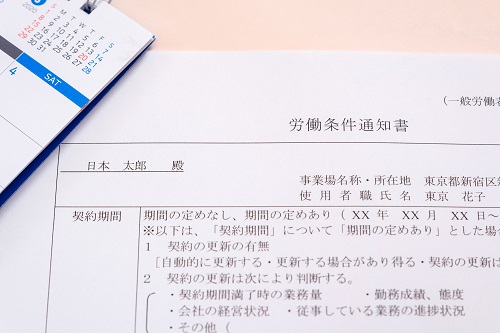 3
2020
S M T W T F S
1 2 3 4 5 6 7
8 9 10 11 12 13 14
15 16 17 18 19 20 21
22 23 24 25 26 27 28
29 30 31
SAT
4
(一般労働者
労働条件通知書
日本 太郎 殿
事業場名称・所在地 東京都新宿区
使用者職氏名 東京 花子
契約期間
期間の定めなし、期間の定めあり ( XX 年 XX 月 XX 日～
※以下は、「契約期間」について「期間の定めあり」とした場合
1 契約の更新の有無
[自動的に更新する・更新する場合があり得る・契約の更新は
2 契約の更新は次により判断する。
・契約期間満了時の業務量 ・勤務成績、態度
・会社の経営状況 ・従事している業務の進捗状況
・その他 (